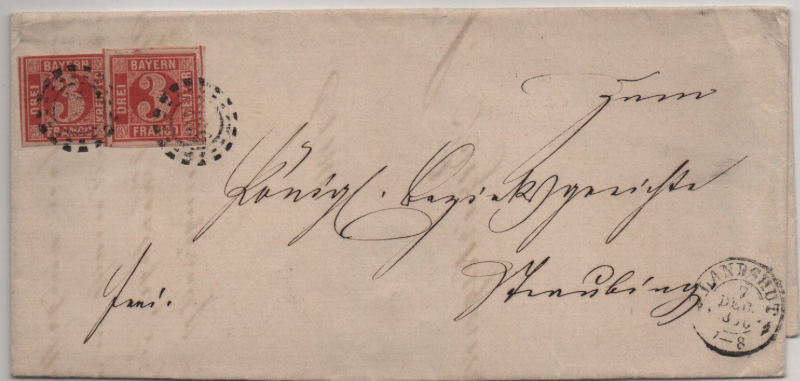 BAYERN
DREI
3
KREUZER
FRANCO
BAYERN
DREI
3
KREUZER
FRANCO
Zum
Königl. Bezirksgerichte
Straubing
frei.
LANDSHUT
7
DEC.
7–8